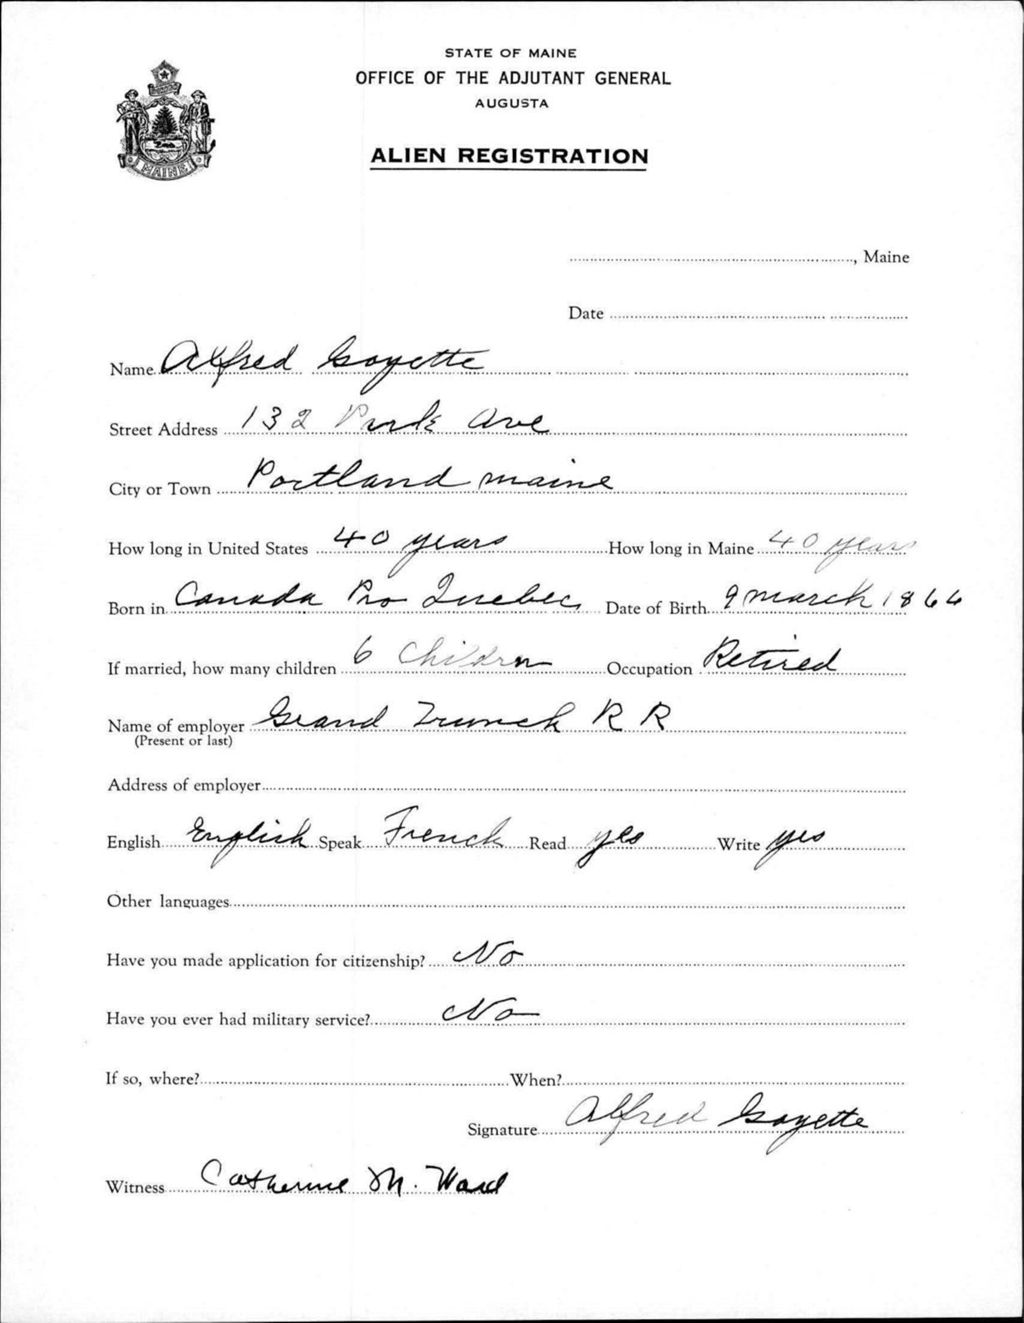 STATE OF MAINE
OFFICE OF THE ADJUTANT GENERAL
AUGUSTA
ALIEN REGISTRATION
MAINE
, Maine
Date
Name Alfred Goyette
Street Address 132 Park Ave
City or Town Portland maine
How long in United States 40 years How long in Maine 40 years
Born in Canada Pro Quebec Date of Birth 9 march 1866
If married, how many children 6 Children Occupation Retired
Name of employer Grand Trunck R R
(Present or last)
Address of employer
English English Speak French Read yes Write yes
Other languages
Have you made application for citizenship? No
Have you ever had military service? No
If so, where? When?
Signature Alfred Goyette
Witness Catherine M. Ward